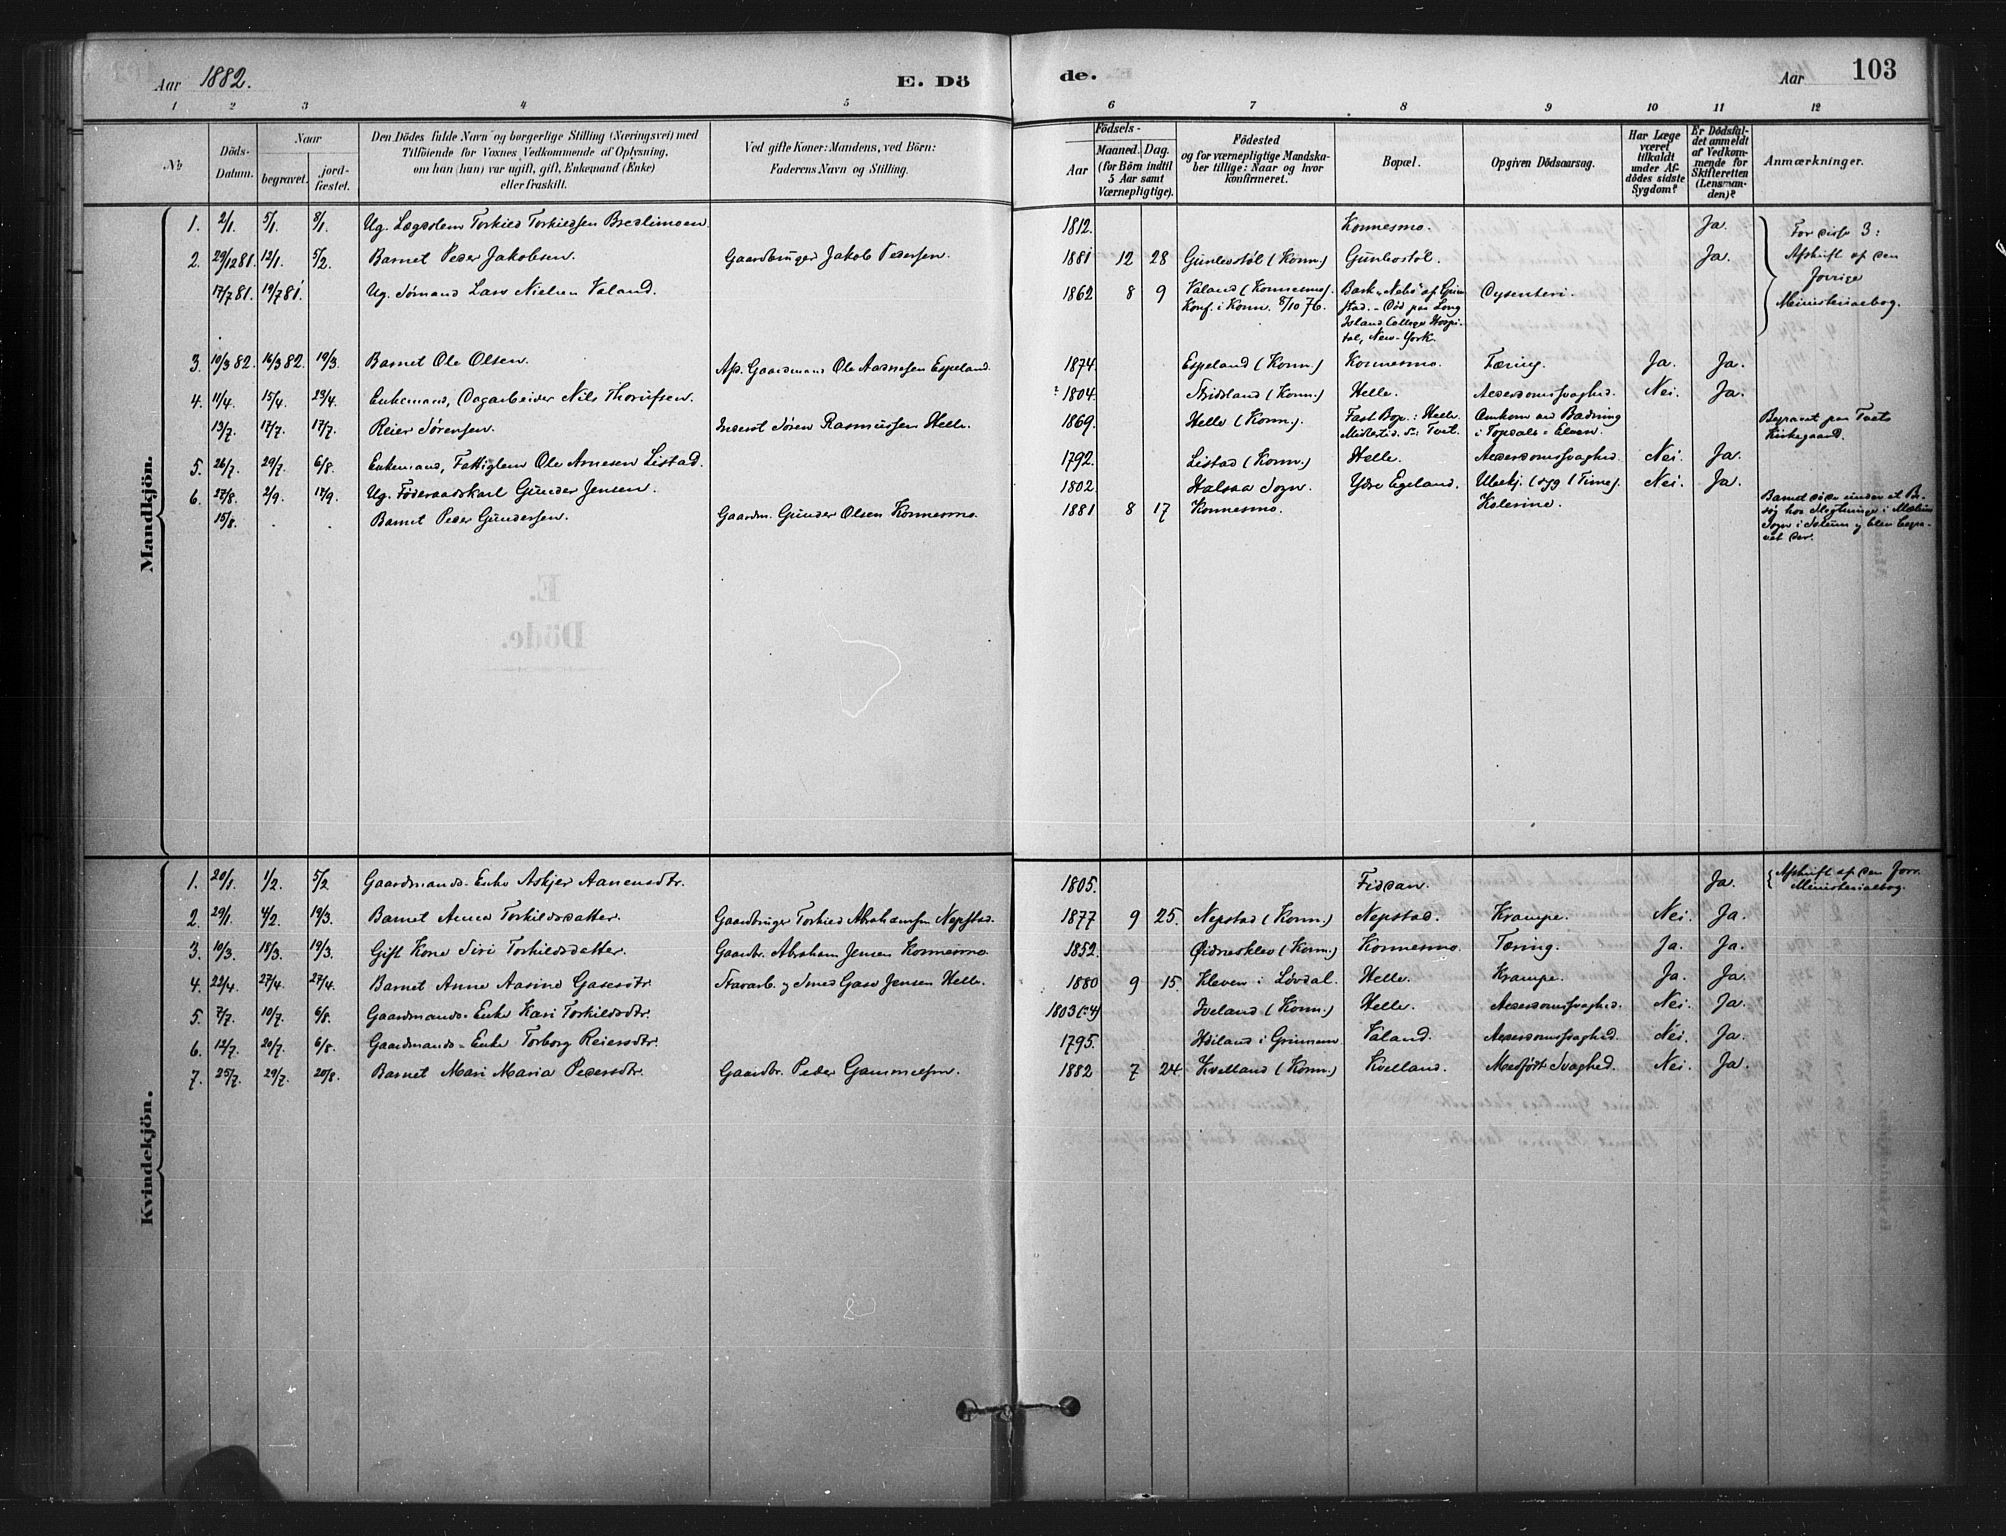 Aar 1882.
E. Dö de.
Aar
103
1 2 3 4 5 6 7 8 9 10 11 12
No
Döds-Datum.
Naar
begravet.
jord-fæstet.
Den Dödes fulde Navn og borgerlige Stilling (Næringsvei) med
Tilföiende for Voxnes Vedkommende af Oplysning,
om han (hun) var ugift, gift, Enkemand (Enke)
eller fraskilt.
Ved gifte Koner: Mandens, ved Börn:
Faderens Navn og Stilling.
Födsels-
Aar
Maaned. Dag.
(for Börn indtil
5 Aar samt
Værnepligtige).
Födested
og for værnepligtige Mandska-
ber tillige: Naar og hvor
konfirmeret.
Bopæl.
Opgiven Dödsaarsag.
Har Læge
været
tilkaldt
under Af-
dödes sidste
Sygdom?
Er Dödsfal-
det anmeldt
af Vedkom-
mende for
Skifteretten
(Lensman-
den)?
Anmærkninger.
Mandkjön.
1. 2/1. 5/1. 8/1. Ug. Lægdslem Torkild Torkildsen 1812. Konnesmo. Ja. For disse 3:
2. 29/12 81. 12/1. 5/2. Barnet Peder Jakobsen. Gaardbruger Jakob Pedersen. 1881 12 28 (Konn.) Ja. Afskrift af den
forrige
17/7 81. 19/7 81. Ug. Sömand Lars Nielsen Valand. 1862 8 9 Valand (Konnesmo). Bark "Nebo" af Grim- Dysenteri. Ministerialbog.
Konf. i Konn. 8/10 76. stad. - Död paa Long
Island College Hospi-
tal, New-York.
3. 10/3 82. 16/3 82. 19/3. Barnet Ole Olsen. Afd. Gaardmand Ole Aadnesen Espeland. 1874. Espeland (Konn.) Konnesmo. Tæring. Ja. Ja.
4. 11/4. 15/4. 23/4. Enkemand, Dagarbeider Nils 1804. (Konn.) Helle. Alderdomssvaghed. Nei. Ja.
13/7. 17/7. 17/7. Reier Sörensen. Inderst Sören Rasmussen Helle. 1869. Helle (Konn.). Fast Bop.: Helle. Omkom ved Badning Begravet paa Tveits
Midlertid. D: Tveit. i Topdals-Elven. Kirkegaard.
5. 26/7. 29/7. 6/8. Enkemand, Fattiglem Ole Arnesen Listad. 1792. Listad (Konn.) Helle. Alderdomssvaghed. Nei. Ja.
6. 27/8. 2/9. 17/9. Ug. Föderaadskarl Gunder Jensen. 1802. Halsaa Sogn. Ydre Egeland. Ubekj. (syg 1 Time). Nei. Ja.
15/8. . . Barnet Peder Gundersen. Gaardm. Gunder Olsen Konnesmo. 1881 8 17 Konnesmo. Kolerine. Barnet döde under et Be-
søg hos Slegtninge i Mælum
Sogn i Solum og blev begra-
vet der.
Kvindekjön.
1. 20/1. 1/2. 5/2 Gaardmands-Enke Askjer Aanensdtr. 1805. Fiddan. Ja. Afskrift af den forr.
Ministerialbog.
2. 29/1. 4/2. 19/3. Barnet Anna Torkildsdatter. Gaardbruger Torkild Abrahamsen Nepstad. 1877 9 25. Nepstad (Konn.) Nepstad. Krampe. Nei. Ja.
3. 10/3. 18/3. 19/3. Gift Kone Siri Torkildsdatter. Gaardbr. Abraham Jensen Konnesmo. 1852. Øidnesklev (Konn.) Konnesmo. Tæring. Ja. Ja.
4. 22/4. 27/4. 27/4. Barnet Anne Aasine Gasesdtr. Jensen Helle. 1880 9 15. Kleven i Lövdal. Helle. Krampe. Ja. Ja.
5. 7/7. 10/7. 6/8. Gaardmands-Enke Kari Torkildsdtr. 1803 (:4) Iveland (Konn.) Helle. Alderdomssvaghed. Nei. Ja.
6. 12/7. 20/7. 6/8. Gaardmands-Enke Torborg Reiersdtr. 1795. Höiland i Grinnem Valand. Alderdomssvaghed. Nei. Ja.
7. 25/7. 29/7. 20/8. Barnet Mari Maria Pedersdtr. Gaardbr. Peder Gammelsen. 1882 7 24. Kvelland (Konn.) Kvelland. Medfödt Svaghed. Nei. Ja.